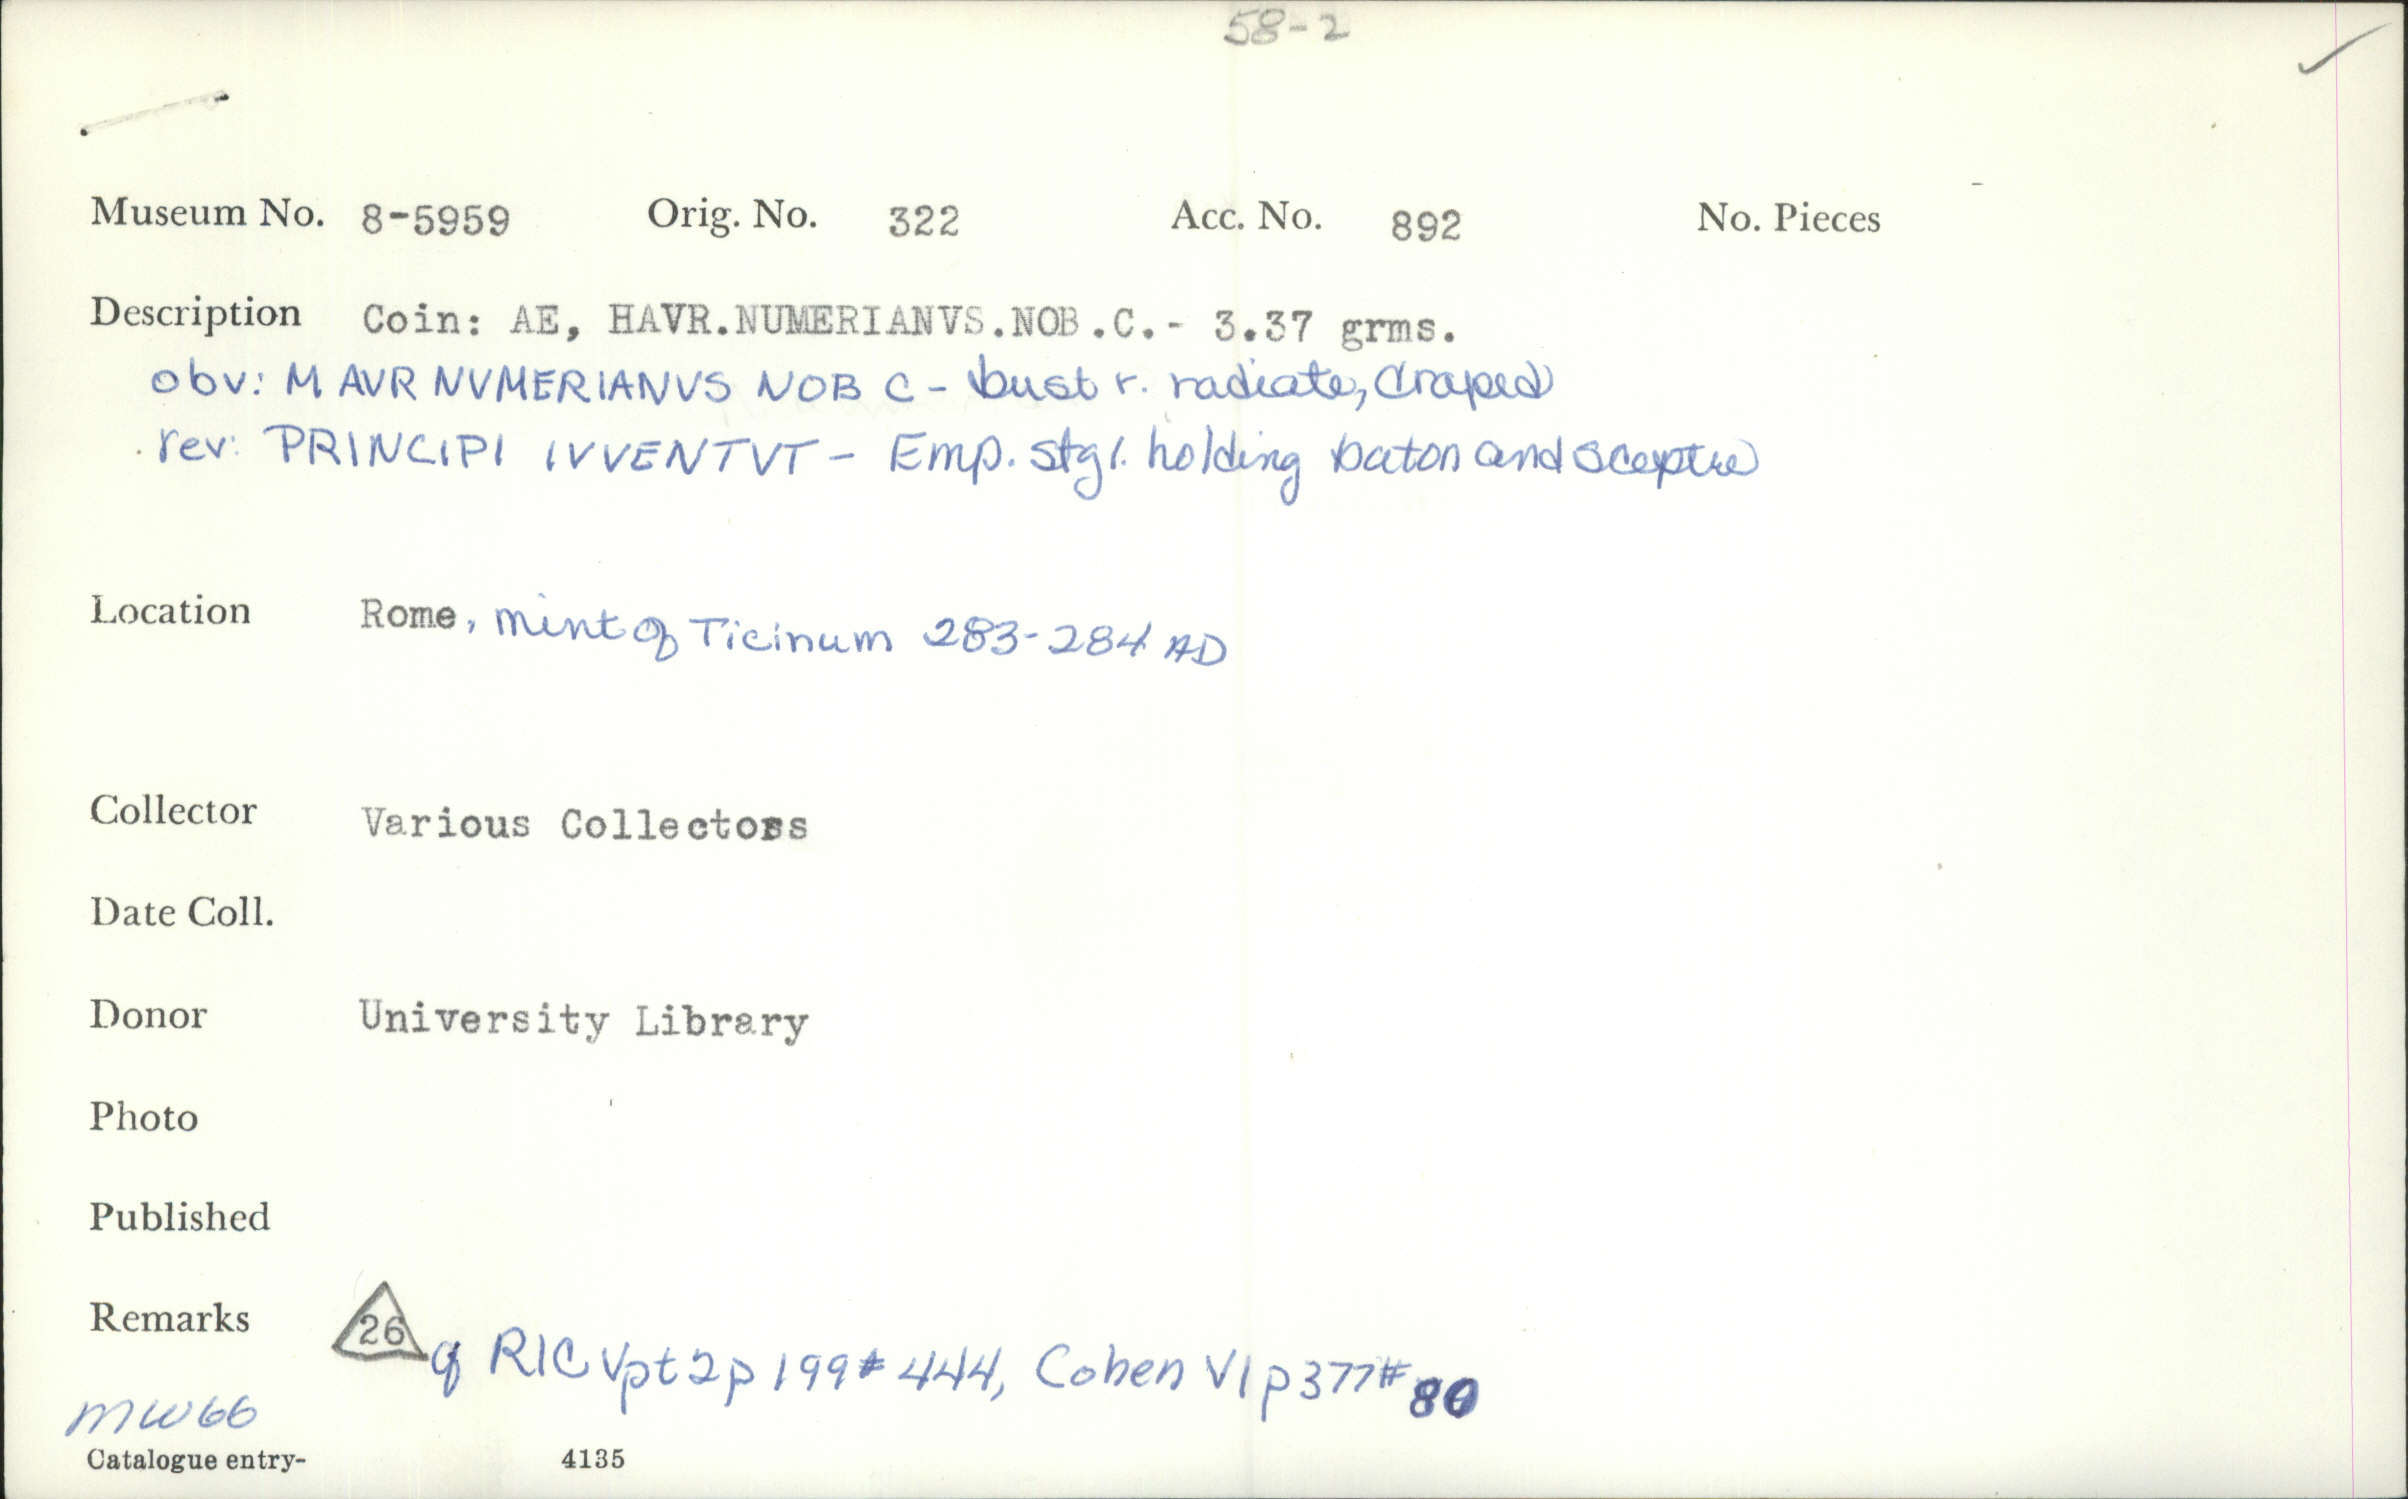 58-2
Museum No. 8-5959 Orig. No. 322 Acc. No. 892 No. Pieces
Description Coin: AE, HAVR.NUMERIANVS.NOB.C.- 3.37 grms.
obv: M AVR NVMERIANVS NOB C - bust r. radiate, draped
rev: PRINCIPI IVVENTVT - Emp. stg l. holding baton and sceptre
Location Rome, mint of Ticinum 283-284 AD
Collector Various Collectors
Date Coll.
Donor University Library
Photo
Published
Remarks 26 cf RIC V pt 2 p 199 # 444, Cohen VI p 377 #
MW66
Catalogue entry- 4135